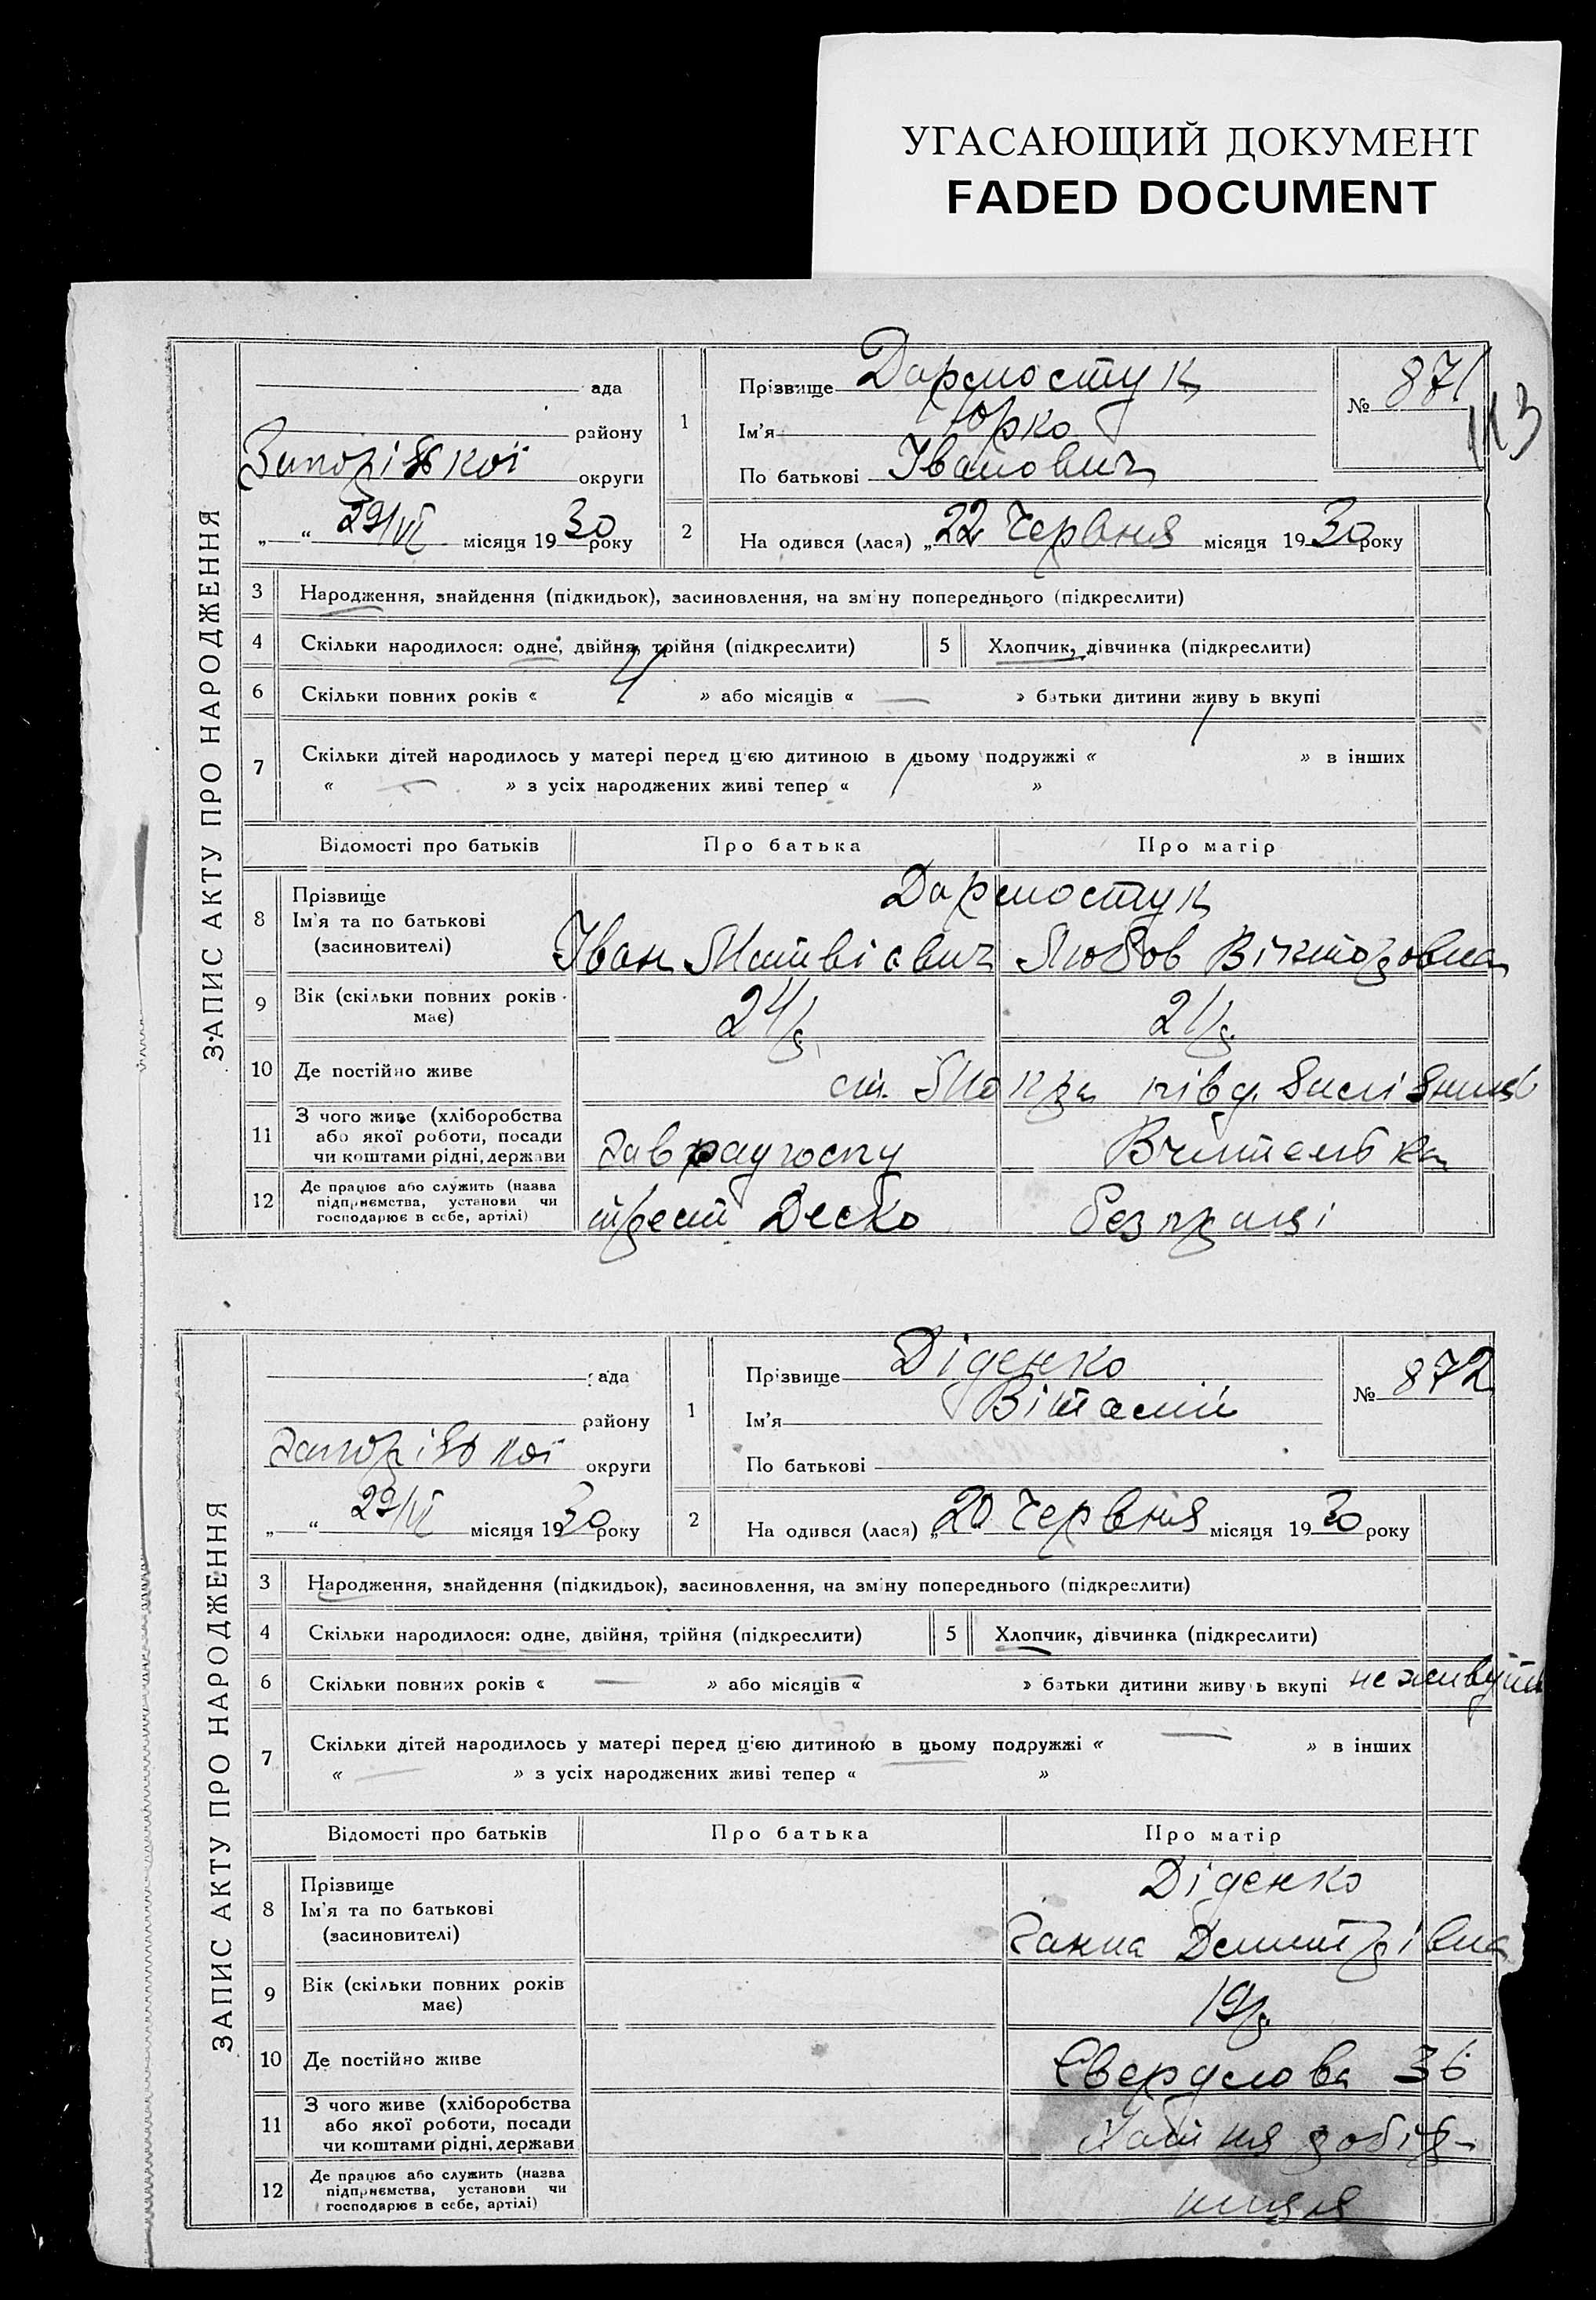 УГАСАЮЩИЙ ДОКУМЕНТ
FADED DOCUMENT
ЗАПИС АКТУ ПРО НАРОДЖЕННЯ
ада
району
Запорізької округи
„ “ 29/VI місяця 1930 року
1
Прізвище Дармостук
Ім'я Юрко
По батькові Іванович
№ 871
113
2
На одився (лася) „22 Червня місяця 1930 року
3 Народження, знайдення (підкидьок), засиновлення, на зміну попереднього (підкреслити)
4 Скільки народилося: одне, двійня, трійня (підкреслити) 5 Хлопчик, дівчинка (підкреслити)
6 Скільки повних років « 4 » або місяців « — » батьки дитини живу ь вкупі
7 Скільки дітей народилось у матері перед цією дитиною в цьому подружжі « 1 » в інших
« — » з усіх народжених живі тепер « 1 »
Відомості про батьків Про батька Про матір
8 Прізвище
Ім'я та по батькові
(засиновителі)
Дармостук
Іван Матвієвич Любов Вікторовна
9 Вік (скільки повних років має)
24/р. 21/р.
10 Де постійно живе
ст. Мокра півд.
11 З чого живе (хліборобства
або якої роботи, посади
чи коштами рідні, держави
Зав радгоспу Вчителька
12 Де працює або служить (назва
підприємства, установи чи
господарює в себе, артілі)
трест Деско без праці
ЗАПИС АКТУ ПРО НАРОДЖЕННЯ
рада
району
Запорізької округи
„ “ 29/VI місяця 1930 року
1
Прізвище Діденко
Ім'я Віталій
По батькові
№ 872
2
На одився (лася) „20 Червня місяця 1930 року
3 Народження, знайдення (підкидьок), засиновлення, на зміну попереднього (підкреслити)
4 Скільки народилося: одне, двійня, трійня (підкреслити) 5 Хлопчик, дівчинка (підкреслити)
6 Скільки повних років « — » або місяців « — » батьки дитини живу ь вкупі не живуть
7 Скільки дітей народилось у матері перед цією дитиною в цьому подружжі « — » в інших
« — » з усіх народжених живі тепер « »
Відомості про батьків Про батька Про матір
8 Прізвище
Ім'я та по батькові
(засиновителі)
Діденко
Ганна Дмитрівна
9 Вік (скільки повних років має)
19/р.
10 Де постійно живе
Свердлова 36
11 З чого живе (хліборобства
або якої роботи, посади
чи коштами рідні, держави
Хатня робіт-
12 Де працює або служить (назва
підприємства, установи чи
господарює в себе, артілі)
ниця